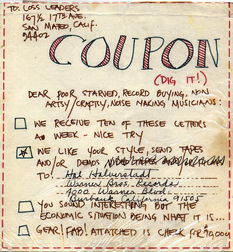 TO: LOSS LEADERS
167½ 17TH AVE.
SAN MATEO, CALIF.
94402
COUPON
(DIG IT!)
DEAR POOR STARVED, RECORD BUYING, NON
ARTSY/CRAFTSY, NOISE MAKING, MUSICIANS:
WE RECEIVE TEN OF THESE LETTERS
A WEEK - NICE TRY
WE LIKE YOUR STYLE, SEND TAPES
AND/OR DEMOS
TO: Hal Halverstadt
Warner Bros. Records
4000 Warner Blvd
Burbank California 91505
YOU SOUND INTERESTING BUT THE
ECONOMIC SITUATION BEING WHAT IT IS...
GEAR/FAB! ATTACHED IS CHECK FOR